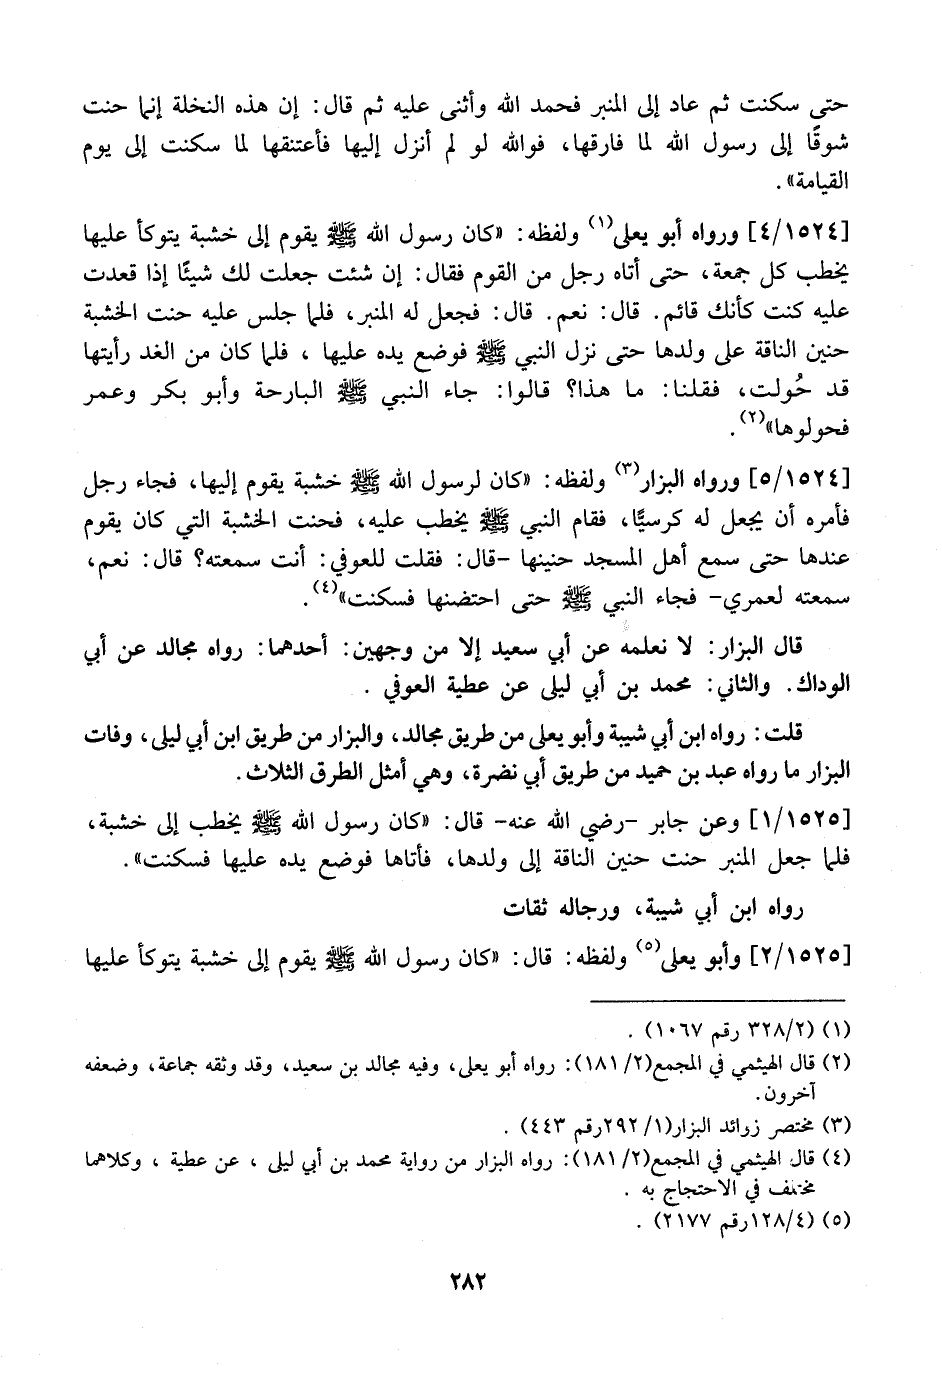 حتى سكنت ثم عاد إلى المنبر فحمد الله وأثنى عليه ثم قال: إن هذه النخلة إنما حنت
شوقًا إلى رسول الله لما فارقها، فوالله لو لم أنزل إليها فأعتنقها لما سكنت إلى يوم
القيامة».
[٤/١٥٢٤] ورواه أبو يعلى(١) ولفظه: «كان رسول الله ﷺ يقوم إلى خشبة يتوكأ عليها
يخطب كل جمعة، حتى أتاه رجل من القوم فقال: إن شئت جعلت لك شيئًا إذا قعدت
عليه كنت كأنك قائم. قال: نعم. قال: فجعل له المنبر، فلما جلس عليه حنت الخشبة
حنين الناقة على ولدها حتى نزل النبي ﷺ فوضع يده عليها ، فلما كان من الغد رأيتها
قد حُولت، فقلنا: ما هذا؟ قالوا: جاء النبي ﷺ البارحة وأبو بكر وعمر
فحولوها»(٢).
[٥/١٥٢٤] ورواه البزار(٣) ولفظه: «كان لرسول الله ﷺ خشبة يقوم إليها، فجاء رجل
فأمره أن يجعل له كرسيًّا، فقام النبي ﷺ يخطب عليه، فحنت الخشبة التي كان يقوم
عندها حتى سمع أهل المسجد حنينها -قال: فقلت للعوفي: أنت سمعته؟ قال: نعم،
سمعته لعمري- فجاء النبي ﷺ حتى احتضنها فسكنت»(٤).
قال البزار: لا نعلمه عن أبي سعيد إلا من وجهين: أحدهما: رواه مجالد عن أبي
الوداك. والثاني: محمد بن أبي ليلى عن عطية العوفي .
قلت: رواه ابن أبي شيبة وأبو يعلى من طريق مجالد، والبزار من طريق ابن أبي ليلى، وفات
البزار ما رواه عبد بن حميد من طريق أبي نضرة، وهي أمثل الطرق الثلاث.
[١/١٥٢٥] وعن جابر -رضي الله عنه- قال: «كان رسول الله ﷺ يخطب إلى خشبة،
فلما جعل المنبر حنت حنين الناقة إلى ولدها، فأتاها فوضع يده عليها فسكنت».
رواه ابن أبي شيبة، ورجاله ثقات
[٢/١٥٢٥] وأبو يعلى(٥) ولفظه: قال: «كان رسول الله ﷺ يقوم إلى خشبة يتوكأ عليها
(١) (٣٢٨/٢ رقم ١٠٦٧) .
(٢) قال الهيثمي في المجمع(٢/ ١٨١): رواه أبو يعلى، وفيه مجالد بن سعيد، وقد وثقه جماعة، وضعفه
آخرون.
(٣) مختصر زوائد البزار(١/ ٢٩٢رقم ٤٤٣) .
(٤) قال الهيثمي في المجمع(٢/ ١٨١): رواه البزار من رواية محمد بن أبي ليلى ، عن عطية ، وكلاهما
مختلف في الاحتجاج به .
(٥) (١٢٨/٤رقم ٢١٧٧) .
٢٨٢